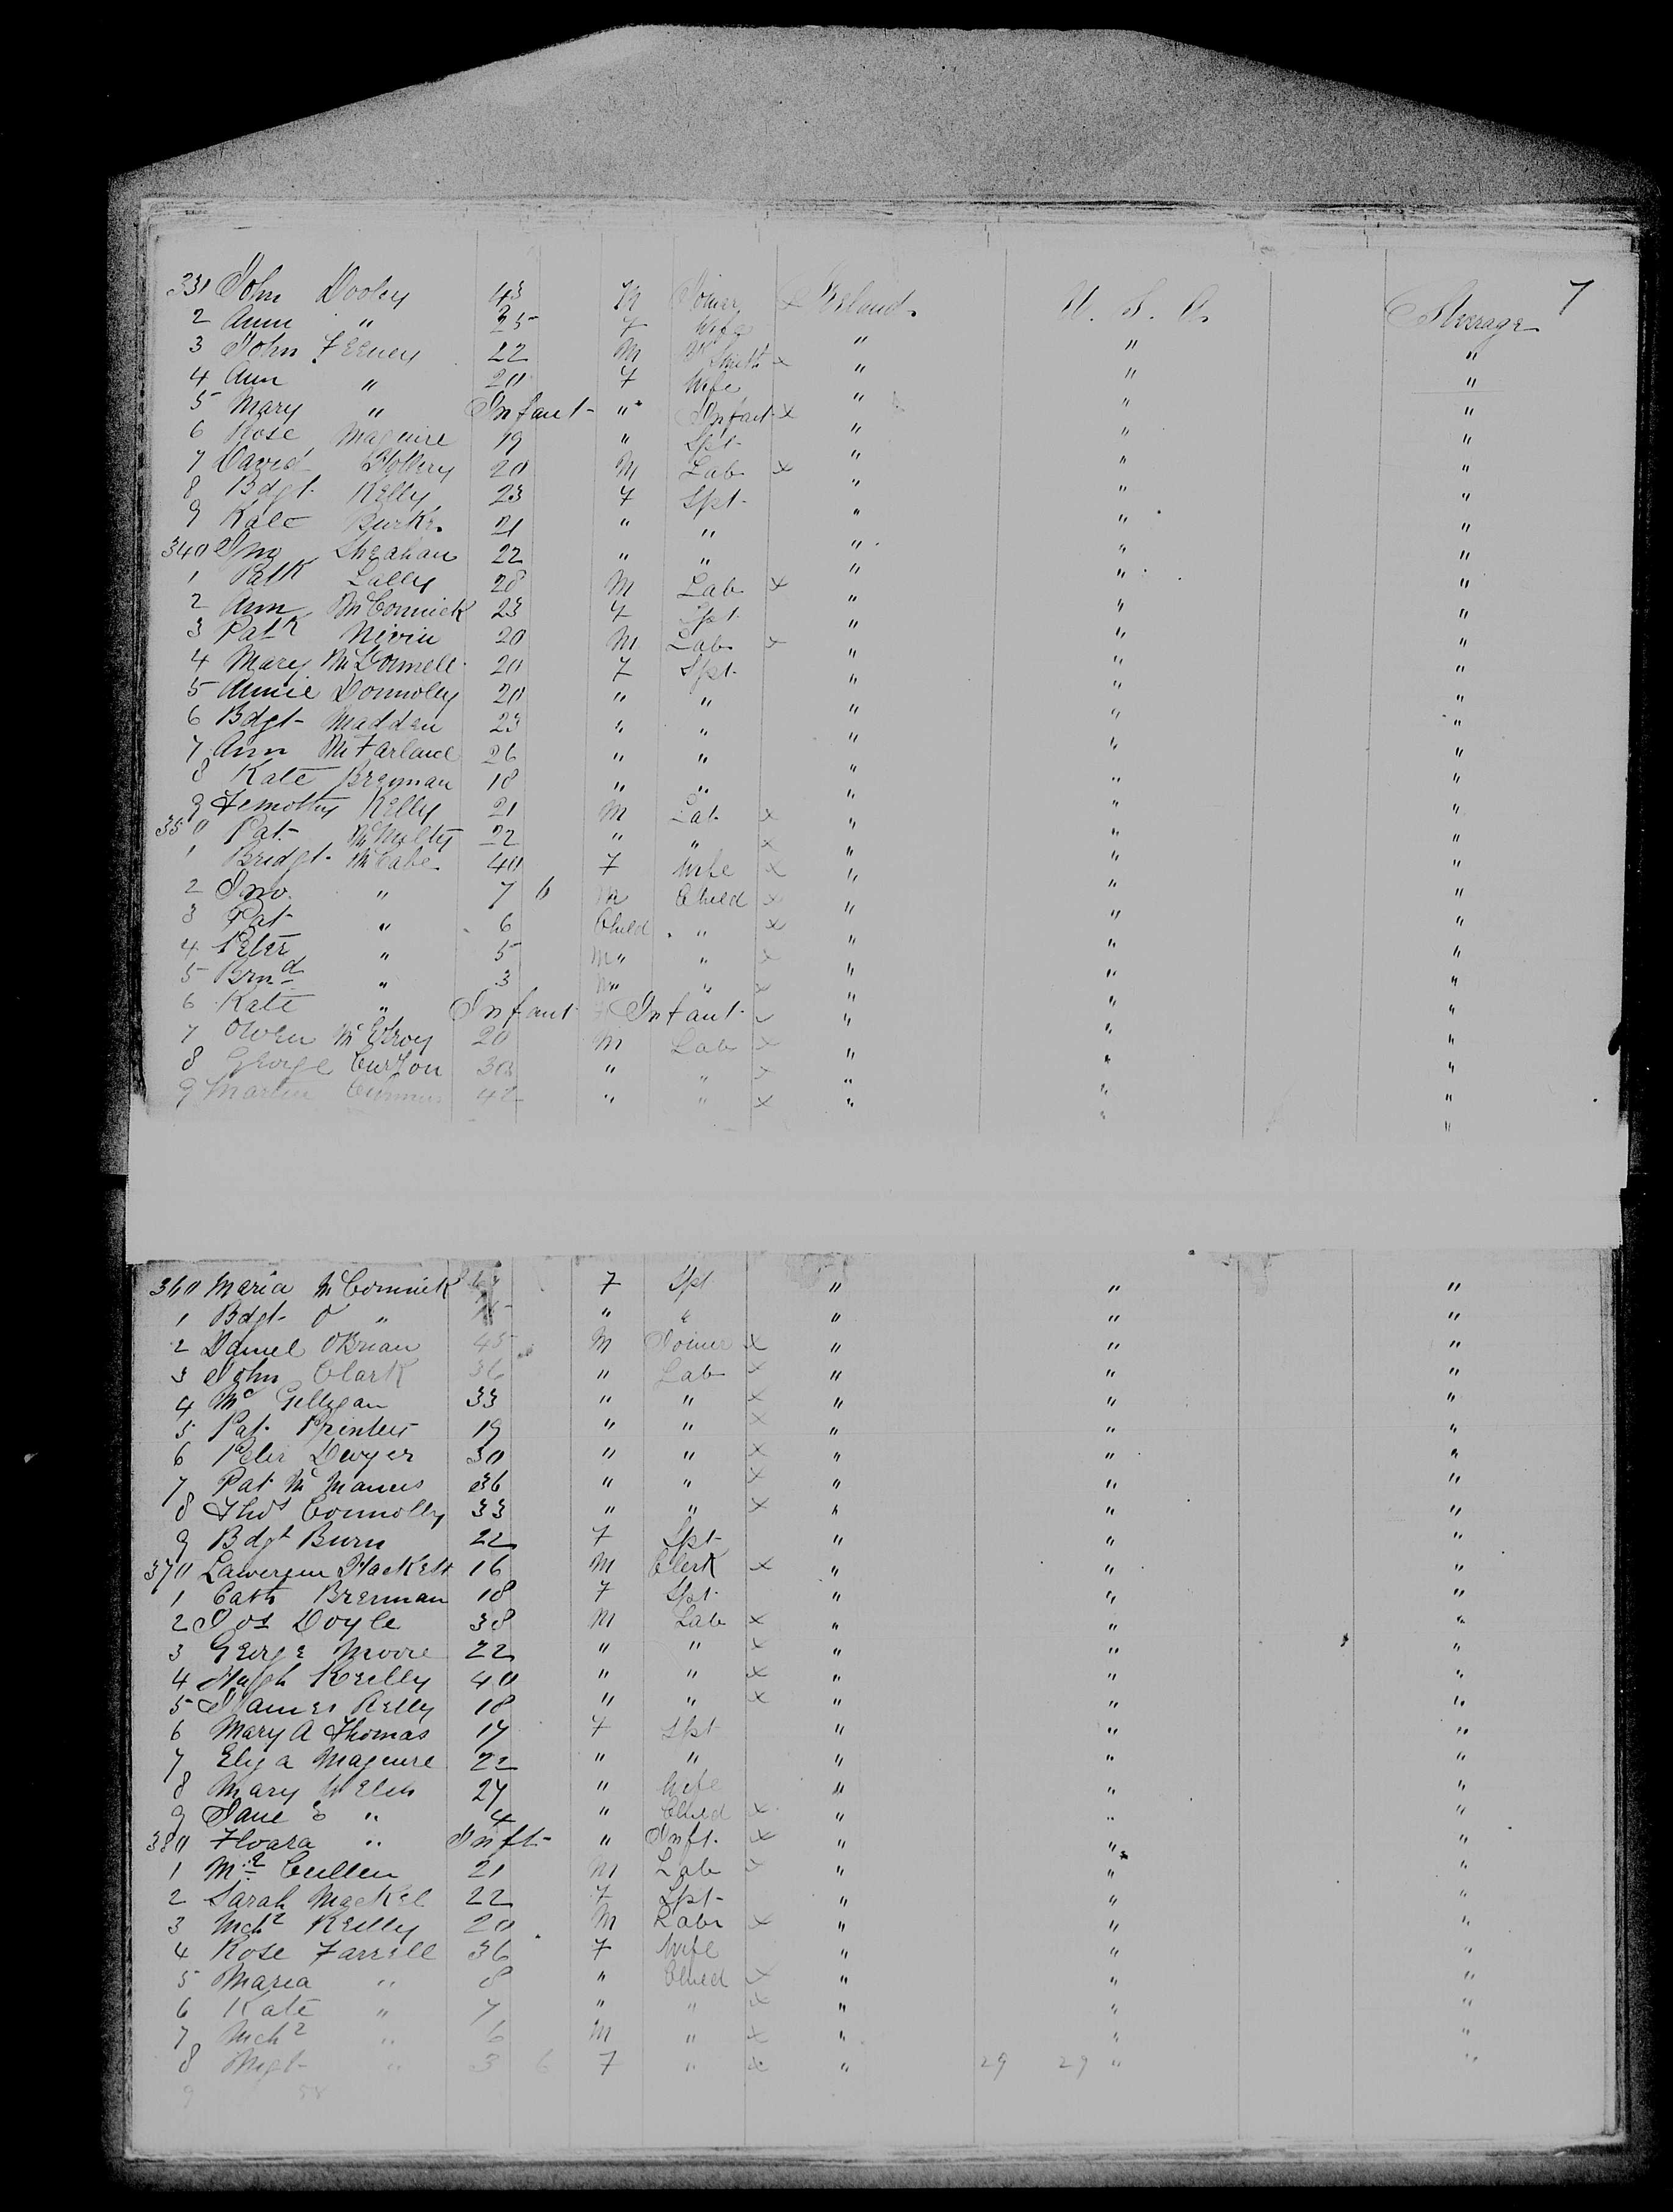 7
331 John Dooley 43 M Joiner x Ireland U. S. A. Steerage
2 Ann " 25 F Wife " " "
3 John Feeney 22 M Bk Smith x " " "
4 Ann " 20 F Wife " " "
5 Mary " Infant " Infant x " " "
6 Rose Maguire 19 " Spt " " "
7 David 20 M Lab x " " "
8 Bdgt Kelly 23 F Spt " " "
9 Kate Burke 21 " " " " "
340 Jno Sheahan 22 " " " " "
1 Patk Lally 28 M Lab x " " "
2 Ann McConnick 23 F Spt " " "
3 Patk Nivin 20 M Lab x " " "
4 Mary McDonnell 20 F Spt " " "
5 Annie Donnolly 20 " " " " "
6 Bdgt Madden 23 " " " " "
7 Ann McFarland 26 " " " " "
8 Kate Brennan 18 " " " " "
9 Temothy Kelly 21 M Lab x " " "
350 Pat McNulty 22 " " x " " "
1 Bridgt McCabe 40 F Wife x " " "
2 Jno. " 7 6 M Child x " " "
3 Pat " 6 Child " x " " "
4 Peter " 5 M " " x " " "
5 Brnd " 3 M " " x " " "
6 Kate " Infant F Infant x " " "
7 Owen McElroy 20 M Lab x " " "
8 George Curzon 30 " " x " " "
9 Martin 42 " " x " " "
360 Maria McConnick F Spt " " "
1 Bdgt " " " " " "
2 Daniel OBrian 45 M Joiner x " " "
3 John Clark 36 " Lab x " " "
4 Mc Gilligan 33 " " x " " "
5 Pat 19 " " x " " "
6 Peter Dwyer 30 " " x " " "
7 Pat McManus 36 " " x " " "
8 Thos Connolly 33 " " x " " "
9 Bdgt Burn 22 F Spt " " "
370 Hackett 16 M Clerk x " " "
1 Cath Brennan 18 F Spt " " "
2 Jos Doyle 38 M Lab x " " "
3 George Moore 22 " " x " " "
4 Hugh Reilly 40 " " x " " "
5 James Kelly 18 " " x " " "
6 Mary A Thomas 17 F Spt " " "
7 Eliza Maguire 22 " " " " "
8 Mary Welsh 27 " Wife " " "
9 Jane E " 4 " Child x " " "
380 Floara " Inft " Inft. x " " "
1 Cullen 21 M Lab x " " "
2 Sarah Mackel 22 F Spt " " "
3 Mchl Reilly 20 M Labr x " " "
4 Rose Farrell 36 F Wife " " "
5 Maria " 8 " Child x " " "
6 Kate " 7 " " x " " "
7 Mchl " 6 M " x " " "
8 Mgt " 3 6 F " x " 29 29 " "
9 58